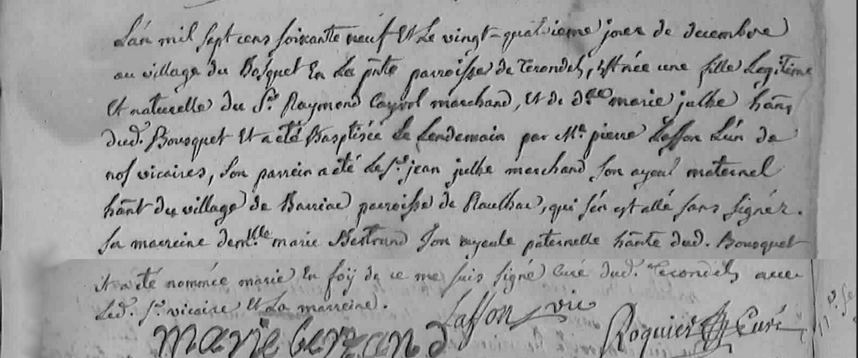 L'an mil sept cens soixante neuf Et Le vingt-quatrieme jour de decembre
au village du Bosquet En La pnte parroisse de Terondels, Est née une fille Legitime
Et naturelle du Sr. Raymond Cayrol marchand, et de dlle marie julhe hans
dud. Bousquet Et a été Baptisée Le Lendemain par Mr. pierre Laffon L'un de
nos vicaires, son parrein a été Le Sr. jean julhe marchand son ayeul maternel
hant du village de Barriac parroisse de Raulhac, qui s'en est allé sans signer.
sa marreine demlle marie Bertrand son ayeule paternelle hante dud. Bousquet
Et a été nommée marie En foÿ de ce me suis signé Curé dud. Terondels avec
Led. Sr. vicaire Et La marreine.
marie bertrand Laffon vic Roquier Curé